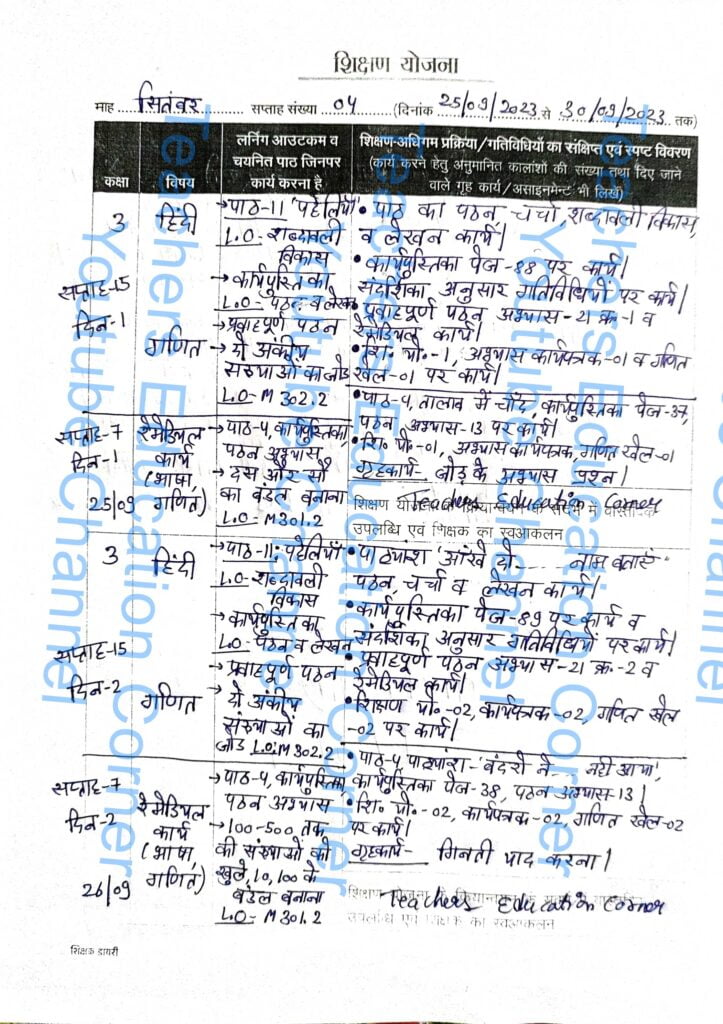 शिक्षण योजना
माह ... सितंबर ... सप्ताह संख्या ... 04 ... (दिनांक 25/09/2023 से 30/09/2023 तक)
कक्षा
विषय
लर्निंग आउटकम व
चयनित पाठ जिनपर
कार्य करना है
शिक्षण-अधिगम प्रक्रिया/गतिविधियों का संक्षिप्त एवं स्पष्ट विवरण
(कार्य करने हेतु अनुमानित कालांशों की संख्या तथा दिए जाने
वाले गृह कार्य/असाइनमेन्ट भी लिखें)
3
सप्ताह-15
दिन-1
हिंदी
गणित
→पाठ-11 'पहेलियाँ'
L.O- शब्दावली
विकास
→कार्यपुस्तिका
L.O- पठन व लेखन
→प्रवाहपूर्ण पठन
→ दो अंकीय
संख्याओं का जोड़
L.O- M 302.2
• पाठ का पठन, चर्चा, शब्दावली विकास,
व लेखन कार्य।
• कार्यपुस्तिका पेज-88 पर कार्य।
संदर्शिका अनुसार गतिविधियों पर कार्य।
• प्रवाहपूर्ण पठन अभ्यास-21 क्र.-1 व
रेमेडियल कार्य।
• शि. यो.-1, अभ्यास कार्यपत्रक-01 व गणित
खेल-01 पर कार्य।
सप्ताह-7
दिन-1
25/09
रेमेडियल
कार्य
(भाषा,
गणित)
→पाठ-4, कार्यपुस्तिका,
पठन अभ्यास
→ दस और सौ
का बंडल बनाना
L.O- M301.2
• पाठ-4, तालाब में चाँद, कार्यपुस्तिका पेज-37,
पठन अभ्यास-13 पर कार्य।
• शि. यो.-01, अभ्यास कार्यपत्रक, गणित खेल-01
गृहकार्य- जोड़ के अभ्यास प्रश्न।
Teachers Education Corner
शिक्षण योजना के क्रियान्वयन के संदर्भ में वास्तविक
उपलब्धि एवं शिक्षक का स्वआकलन
3
सप्ताह-15
दिन-2
हिंदी
गणित
→पाठ-11: पहेलियाँ
L.O- शब्दावली
विकास
→कार्यपुस्तिका
L.O- पठन व लेखन
→प्रवाहपूर्ण पठन
→ दो अंकीय
संख्याओं का
जोड़ L.O: M 302.2
• पाठ्यांश 'आंखे दो ---- नाम बताएँ'
पठन, चर्चा व लेखन कार्य।
• कार्यपुस्तिका पेज-89 पर कार्य व
संदर्शिका अनुसार गतिविधियों पर कार्य।
• प्रवाहपूर्ण पठन अभ्यास-21 क्र.-2 व
रेमेडियल कार्य।
• शिक्षण यो.-02, कार्यपत्रक-02, गणित खेल
-02 पर कार्य।
सप्ताह-7
दिन-2
26/09
रेमेडियल
कार्य
(भाषा,
गणित)
→पाठ-4, कार्यपुस्तिका,
पठन अभ्यास
→100-500 तक
की संख्याओं को
खुले, 10, 100 के
बंडल बनाना
L.O- M 301.2
• पाठ-4, पाठ्यांश- 'बंदरों ने ---- नहीं आया',
कार्यपुस्तिका पेज-38, पठन अभ्यास-13।
• शि. यो.-02, कार्यपत्रक-02, गणित खेल-02
पर कार्य।
गृहकार्य- गिनती याद करना।
Teachers Education Corner
शिक्षण योजना के क्रियान्वयन के संदर्भ में वास्तविक
उपलब्धि एवं शिक्षक का स्वआकलन
शिक्षक डायरी
Teachers Education Corner
Youtube Channel
Teachers Education Corner
Youtube Channel